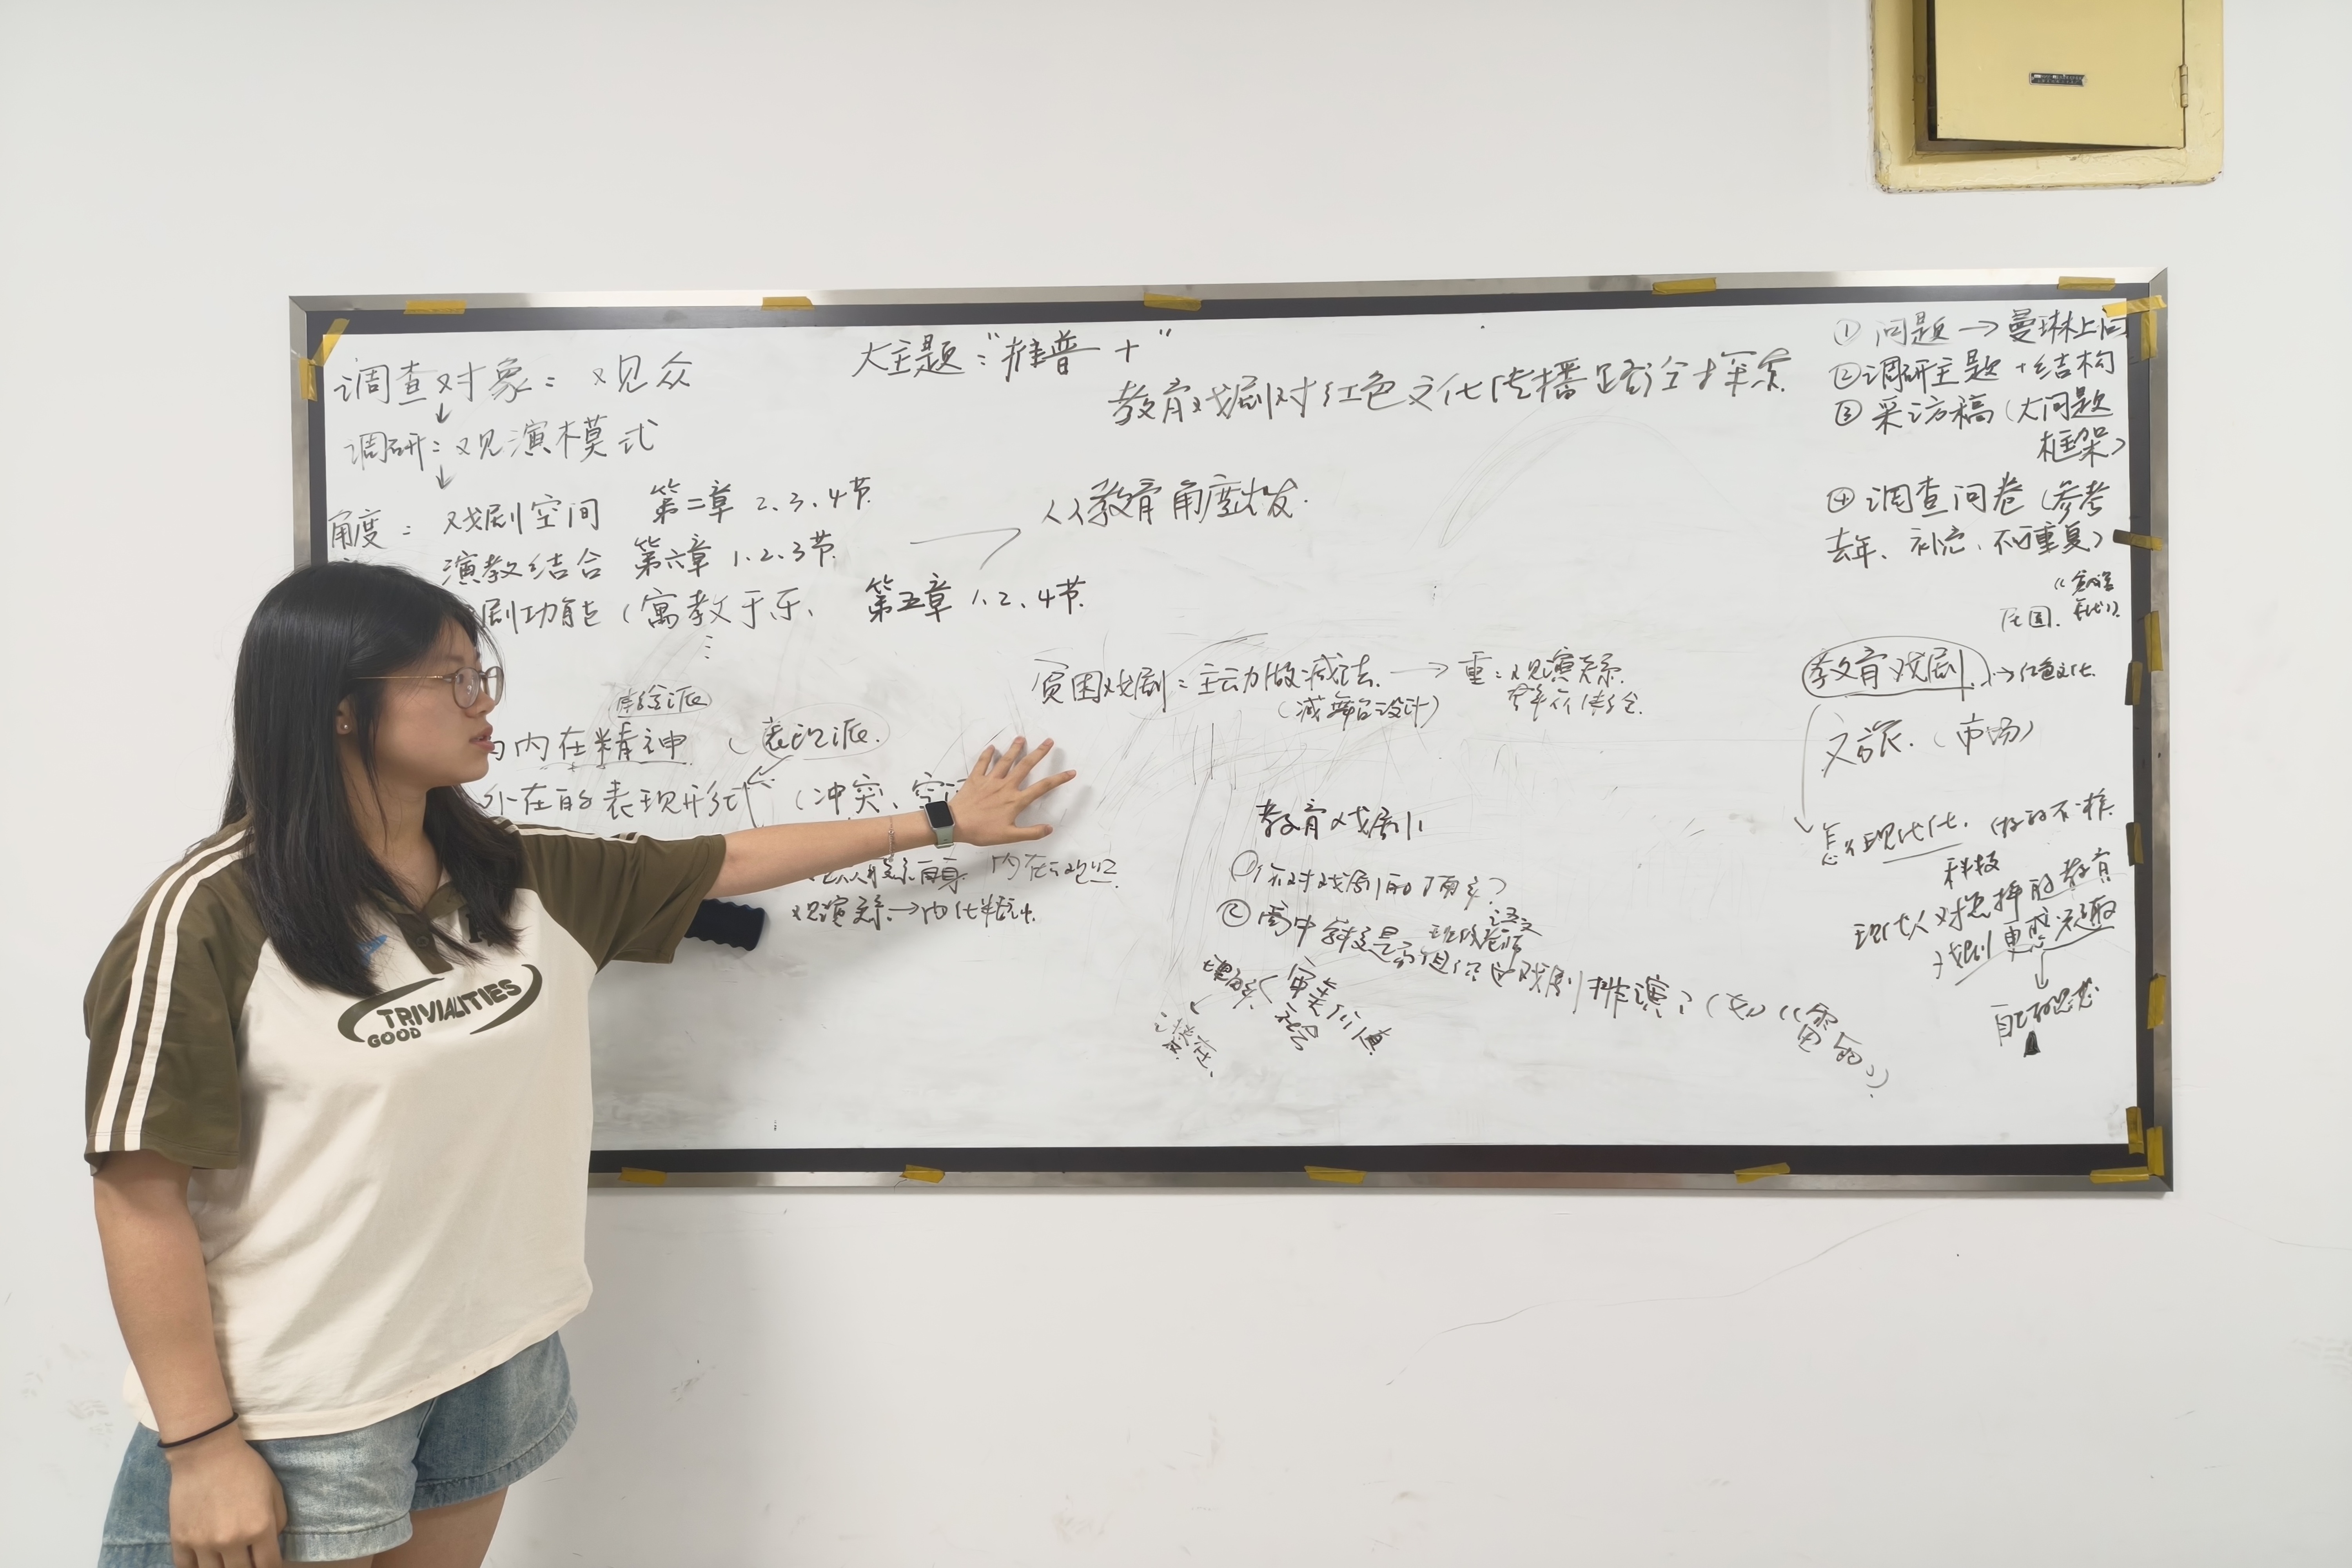 大主题:“推普+”
教育戏剧对红色文化传播路径探索
调查对象:观众
↓
调研:观演模式
↓
角度:戏剧空间 第二章 2、3、4节
演教结合 第六章 1、2、3节
剧功能(寓教于乐、 第五章 1、2、4节
从教育角度出发.
体验派
内在精神 (表现派.
外在的表现形式 (冲突、空
内在
观演关系→内化精神.
贫困戏剧:主动做减法.→重:观演关系.
(减舞台设计)
教育戏剧
①你对戏剧的了解?
②高中学校是否组织过戏剧排演?(如《雷雨》)
语文
审美价值
社会
① 问题→曼琳上问
②调研主题+结构
③采访稿(大问题
框架)
④调查问卷(参考
去年、补充、不可重复)
民国.
教育戏剧.→红色文化.
文旅.(市场)
怎么现代化.做的不一样.
科技
现代人对怎样的教育
戏剧更感兴趣
↓
自己的思考
TRIVIALITIES
GOOD